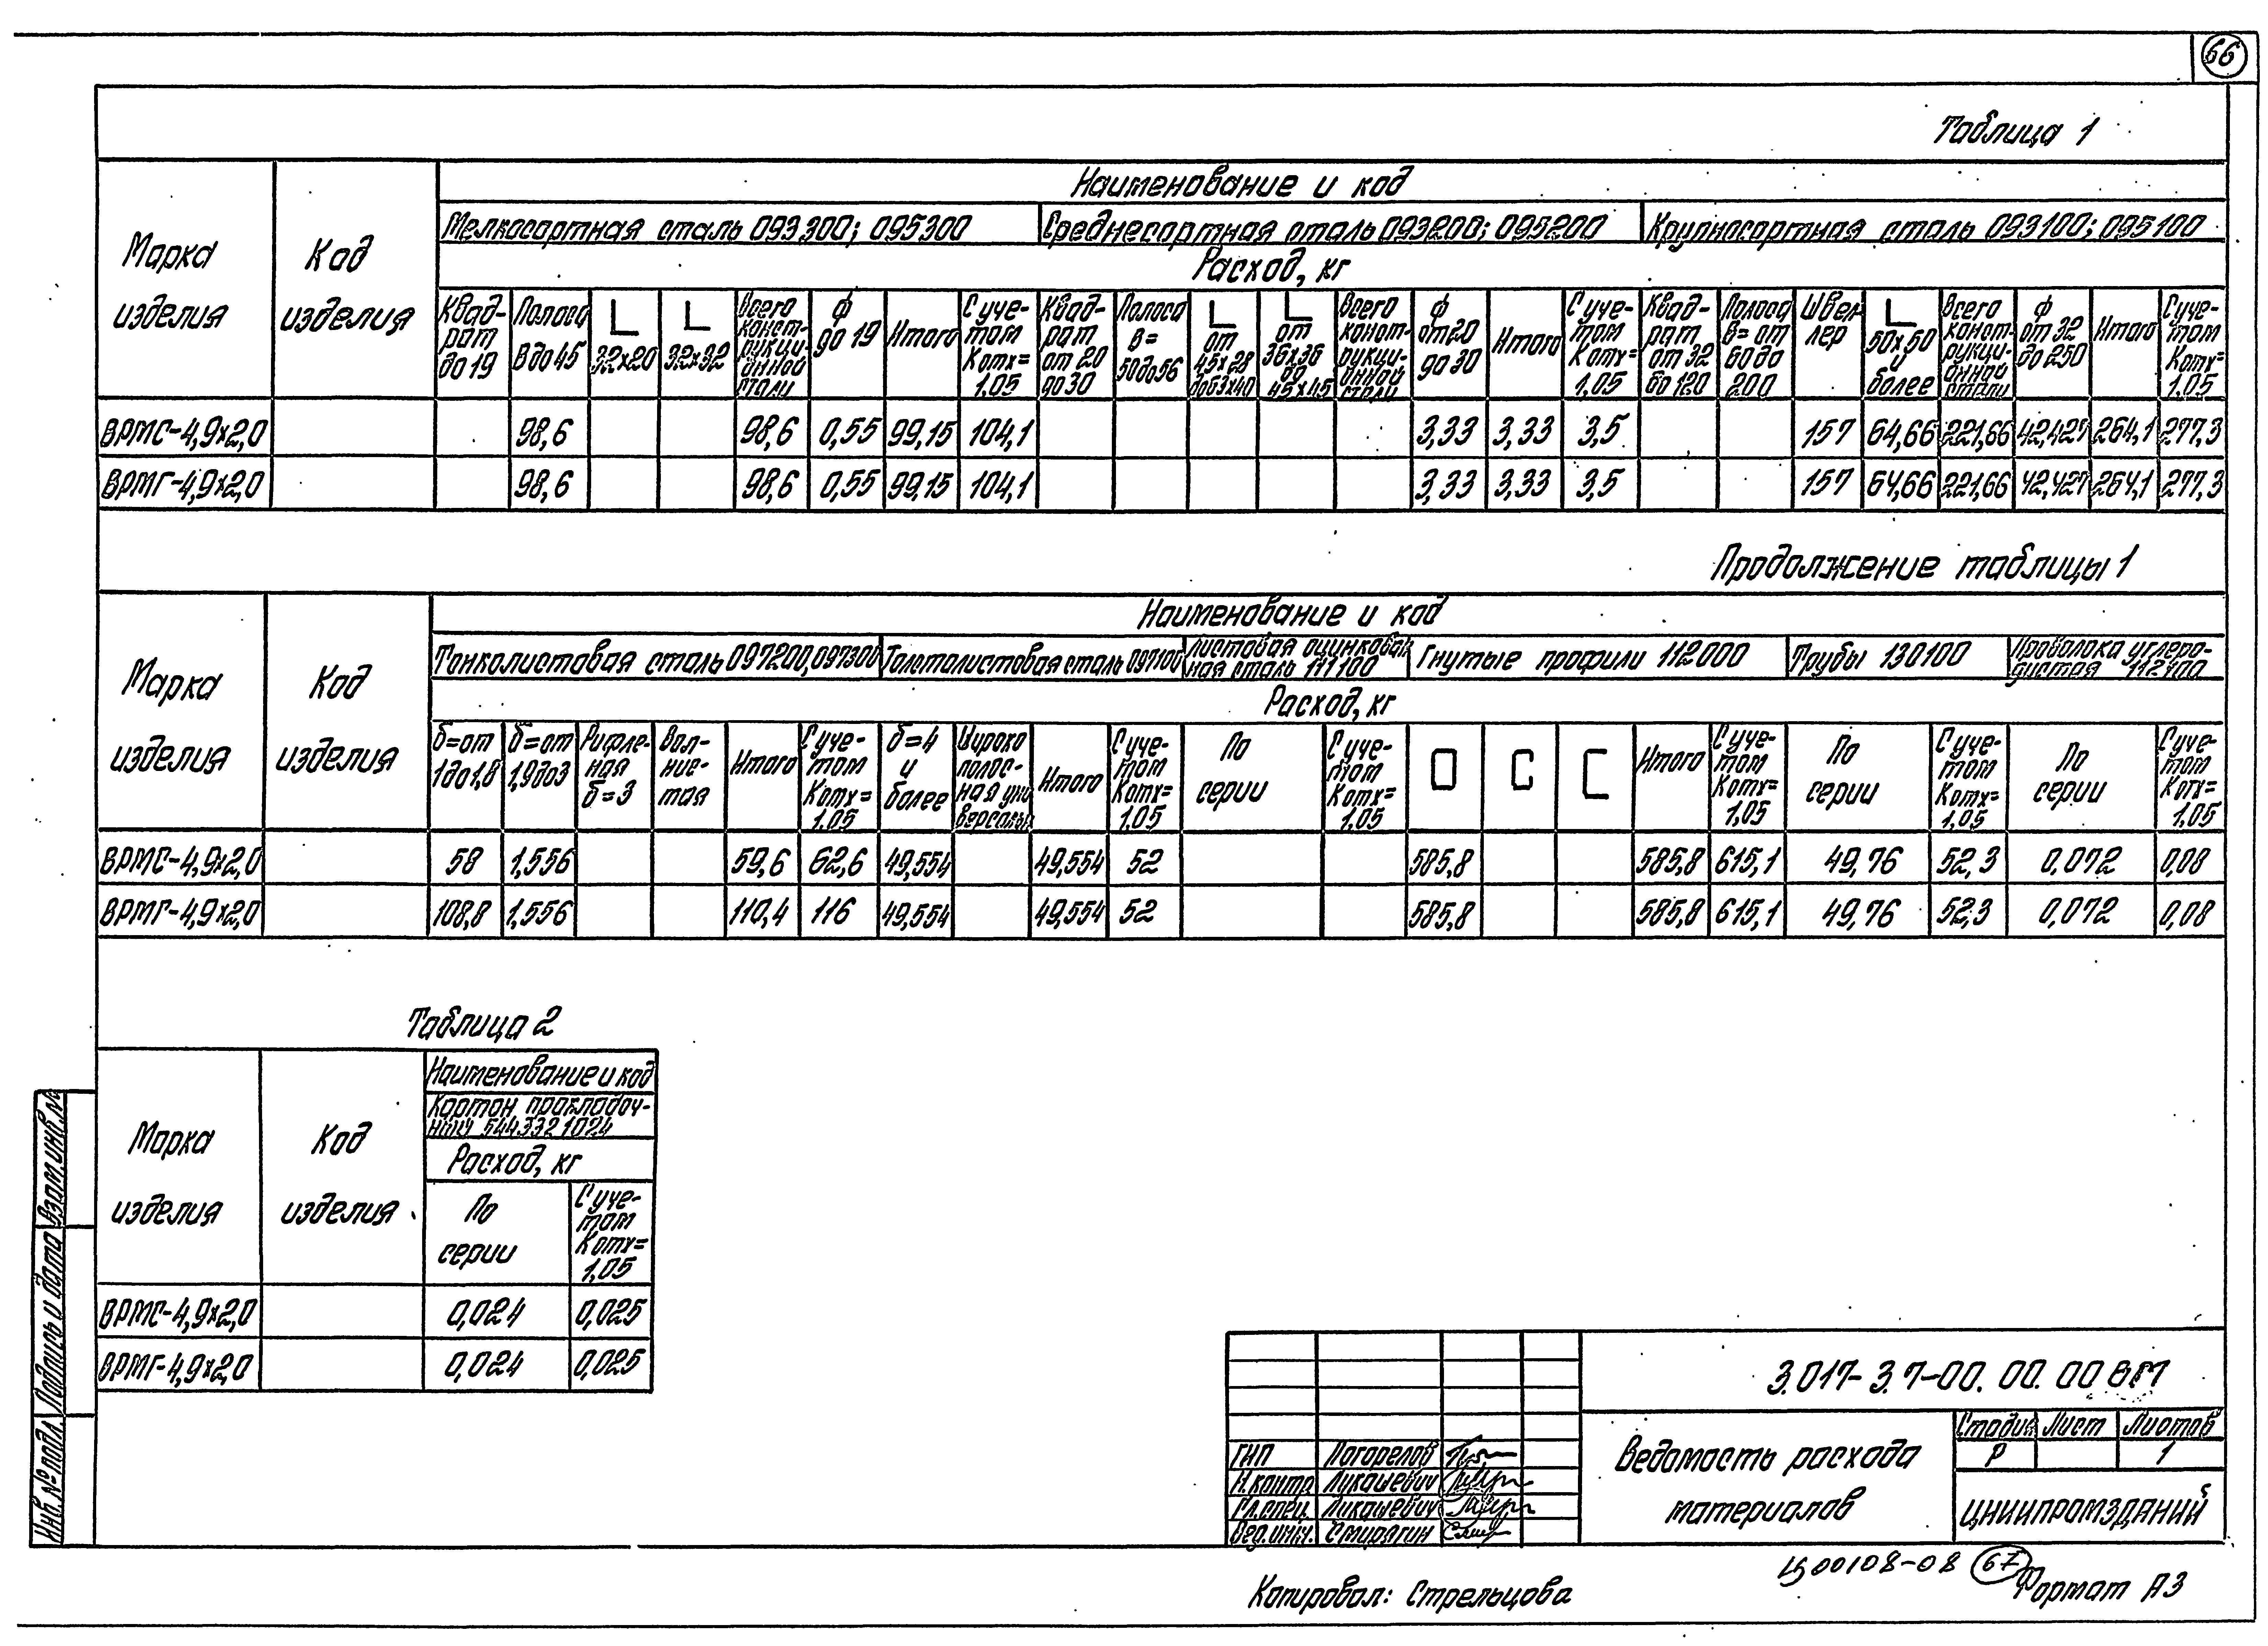 66
Таблица 1
Марка изделия
Код изделия
Наименование и код
Мелкосортная сталь 093300; 095300
Среднесортная сталь 093200; 095200
Крупносортная сталь 093100; 095100
Расход, кг
Квад-рат до 19
Полоса В до 45
32х20
32х32
Всего конст-рукци-онной стали
Ф до 19
Итого
С уче-том Котх= 1,05
Квад-рат от 20 до 30
Полоса в= 50до56
от 45х28 до63х40
от 36х36 до 45х45
Всего конст-рукци-онной стали
Ф от20 до 30
Итого
С уче-том Котх= 1,05
Квад-рат от 32 до 120
Полоса в= от 60 до 200
Швел лер
50х50 и более
Всего конст-рукци-онной стали
Ф от 32 до 250
Итого
С уче-том Котх= 1,05
ВРМС-4,9х2,0 98,6 98,6 0,55 99,15 104,1 3,33 3,33 3,5 157 64,66 221,66 42,427 264,1 277,3
ВРМГ-4,9х2,0 98,6 98,6 0,55 99,15 104,1 3,33 3,33 3,5 157 64,66 221,66 42,427 264,1 277,3
Продолжение таблицы 1
Марка изделия
Код изделия
Наименование и код
Тонколистовая сталь 097200,097300
Толстолистовая сталь 097100
Листовая оцинкован ная сталь 111100
Гнутые профили 112000
Трубы 130100
Проволока углеро-дистая
Расход, кг
б=от 1до1,8
б=от 1,9до3
Рифле-ная б=3
Вол-нис-тая
Итого
С уче-том Котх= 1,05
б=4 и более
Широко полос-ная уни версальн
Итого
С уче-том Котх= 1,05
По серии
С уче-том Котх= 1,05
Итого
С уче-том Котх= 1,05
По серии
С уче-том Котх= 1,05
По серии
С уче-том Котх= 1,05
ВРМС-4,9х2,0 58 1,556 59,6 62,6 49,554 49,554 52 585,8 585,8 615,1 49,76 52,3 0,072 0,08
ВРМГ-4,9х2,0 108,8 1,556 110,4 116 49,554 49,554 52 585,8 585,8 615,1 49,76 52,3 0,072 0,08
Таблица 2
Марка изделия
Код изделия
Наименование и код
Картон прокладоч-ный 544332 1024
Расход, кг
По серии
С уче-том Котх= 1,05
ВРМС-4,9х2,0 0,024 0,025
ВРМГ-4,9х2,0 0,024 0,025
Взам.инв.№
Подпись и дата
Инв.№ подл.
3.017-3.7-00.00.00 ВМ
ГИП Погорелов
Н.контр. Лукашевич
Гл.спец. Лукашевич
Вед.инж. Смирягин
Ведомость расхода материалов
Стадия Лист Листов
Р 1
ЦНИИПРОМЗДАНИЙ
Копировал: Стрельцова
Ц00108-08 67
Формат А3